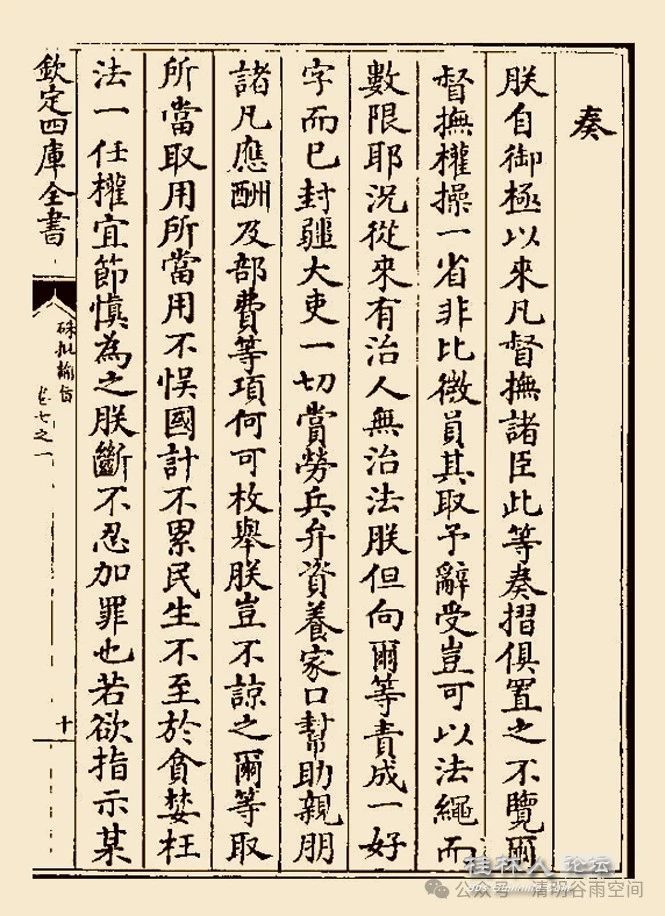 奏
朕自御極以來凡督撫諸臣此等奏摺俱置之不覽爾
督撫權操一省非比微員其取予辭受豈可以法繩而
數限耶況從來有治人無治法朕但向爾等責成一好
字而已封疆大吏一切賞勞兵弁資養家口幫助親朋
諸凡應酬及部費等項何可枚舉朕豈不諒之爾等取
所當取用所當用不悞國計不累民生不至於貪婪枉
法一任權宜節慎為之朕斷不忍加罪也若欲指示某
欽定四庫全書
硃批諭旨
卷七之一
十
桂林人论坛
公众号·清明谷雨空间